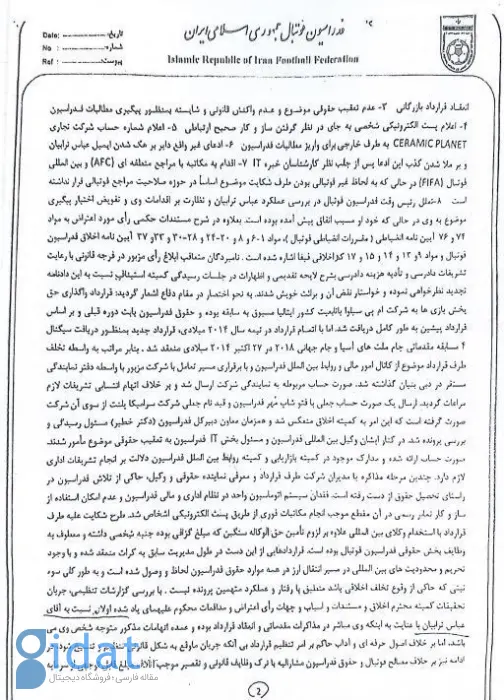 فدراسیون فوتبال جمهوری اسلامی ایران
Islamic Republic of Iran Football Federation
تاریخ: Date:
شماره: No :
پیوست: Ref :
انعقاد قرارداد بازرگانی ۳- عدم تعقیب حقوقی موضوع و عدم واکنش قانونی و شایسته بمنظور پیگیری مطالبات فدراسیون
۴- اعلام پست الکترونیکی شخصی به جای در نظر گرفتن ساز و کار صحیح ارتباطی ۵- اعلام شماره حساب شرکت تجاری
CERAMIC PLANET به طرف خارجی برای واریز مطالبات فدراسیون ۶- ادعای غیر واقع دایر بر هک شدن ایمیل عباس ترابیان
و بر ملا شدن کذب این ادعا پس از جلب نظر کارشناسان خبره IT ۷- اقدام به مکاتبه با مراجع منطقه ای (AFC) و بین المللی
فوتبال (FIFA) در حالی که به لحاظ غیر فوتبالی بودن طرف شکایت موضوع اساساً در حوزه صلاحیت مراجع فوتبالی قرار نداشته
است ۸- رئیس وقت فدراسیون فوتبال در بررسی عملکرد عباس ترابیان و نظارت بر اقدامات وی و تفویض اختیار پیگیری
موضوع به وی در حالی که خود او مسبب اتفاق پیش آمده بوده است. بعلاوه در شرح مستندات حکمی رأی مورد اعتراض به مواد
۷۴ و ۷۶ آیین نامه انضباطی (مقررات انضباطی فوتبال)، مواد ۱-۶ و ۸ و ۲۰-۲۴ و ۲۸-۳۰ و ۳۳ و ۳۷ آیین نامه اخلاق فدراسیون
فوتبال و مواد ۹ و ۱۳ و ۱۴ و ۱۵ و ۱۷ کد اخلاقی فیفا اشاره شده است. نامبردگان متعاقب ابلاغ رأی مزبور در فرجه قانونی با رعایت
تشریفات دادرسی و تأدیه هزینه دادرسی بشرح لایحه تقدیمی و اظهارات در جلسات رسیدگی کمیته استیناف نسبت به این دادنامه
تجدید نظرخواهی نموده و خواستار نقض آن و برائت خویش شدند. به نحو اختصار در مقام دفاع اشعار گردید: قرارداد واگذاری حق
پخش بازی ها به شرکت ام پی سیلوا باتابعیت کشور ایتالیا مسبوق به سابقه بوده و حقوق فدراسیون بابت دوره قبلی و بر اساس
قرارداد پیشین به طور کامل دریافت شد. اما با اتمام قرارداد در نیمه سال ۲۰۱۴ میلادی، قرارداد جدید بمنظور دریافت سیگنال
۴ مسابقه مقدماتی جام ملت های آسیا و جام جهانی ۲۰۱۸ در ۲۷ اکتبر ۲۰۱۴ میلادی منعقد شد. بنابر مراتب به واسطه تخلف
طرف قرارداد موضوع از کانال امور مالی و روابط بین الملل فدراسیون و با برقراری مسیر تعامل با شرکت مزبور با واسطه دفتر نمایندگی
مستقر در دبی بنیان گذاشته شد. صورت حساب مربوطه به نمایندگی شرکت ارسال شد و بر خلاف اتهام انتسابی تشریفات لازم
مراعات گردید. ارسال یک صورت حساب جعلی با فتو شاپ مهر فدراسیون و قید نام جعلی شرکت سرامیکا پلنت از سوی آن شرکت
صورت گرفته است که این امر به کمیته اخلاق منعکس شد و همزمان معاون دبیرکل فدراسیون (دکتر خطیر) مسئول رسیدگی و
بررسی پرونده شد. در کنار ایشان وکیل بین المللی فدراسیون و مسئول بخش IT فدراسیون به تعقیب حقوقی موضوع مأمور شدند.
صورت حساب ارائه شده و مدارک موجود در کمیته بازاریابی و کمیته روابط بین الملل فدراسیون دلالت بر انجام تشریفات اداری
لازم دارد. چندین مرحله مذاکره با مدیران شرکت طرف قرارداد و معرفی نماینده حقوقی و وکیل، حاکی از تلاش فدراسیون در
راستای تحصیل حقوق از دست رفته است. فقدان سیستم اتوماسیون واحد در نظام اداری و مالی فدراسیون و عدم امکان استفاده از
ساز و کار نمابر رسمی در آن مقطع موجب انجام مکاتبات فوری از طریق پست الکترونیکی اشخاص شد. طرح شکایت علیه طرف
قرارداد با استخدام وکلای بین المللی علاوه بر لزوم تأمین حق الوکاله سنگین که مبلغ گزافی بوده جنبه شخصی داشته و معطوف به
وظایف بخش حقوقی فدراسیون فوتبال بوده است. قراردادهایی از این دست در طول مدیریت سابق به کرات منعقد شده و با وجود
تحریم و محدودیت های بین المللی در مسیر انتقال ارز در همه موارد حقوق فدراسیون لحاظ و وصول شده است و به طور کلی سوء
نیتی که حاکی از وقوع تخلف اخلاقی باشد منطبق با رفتار و عملکرد متهمین پرونده نیست. با بررسی گزارشات تنظیمی، جریان
تحقیقات کمیته محترم اخلاق و مستندات و اسباب و جهات رأی اعتراض و مدافعات محکوم علیهمای یاد شده اولاً: نسبت به آقای
عباس ترابیان با عنایت به اینکه وی مباشر در مذاکرات مقدماتی و انعقاد قرارداد بوده و عمده اتهامات مذکور متوجه شخص وی می
باشد، اما بر خلاف اصول حرفه ای و آداب حاکم بر امر تنظیم قرارداد بی آنکه جریان ماوقع به شکل قانونی
ادامه نیز بر خلاف مصالح فوتبال و حقوق فدراسیون مشارالیه با ترک وظایف قانونی و تقصیر موجب
2
gidat
مقاله فارسی؛ فروشگاه دیجیتال